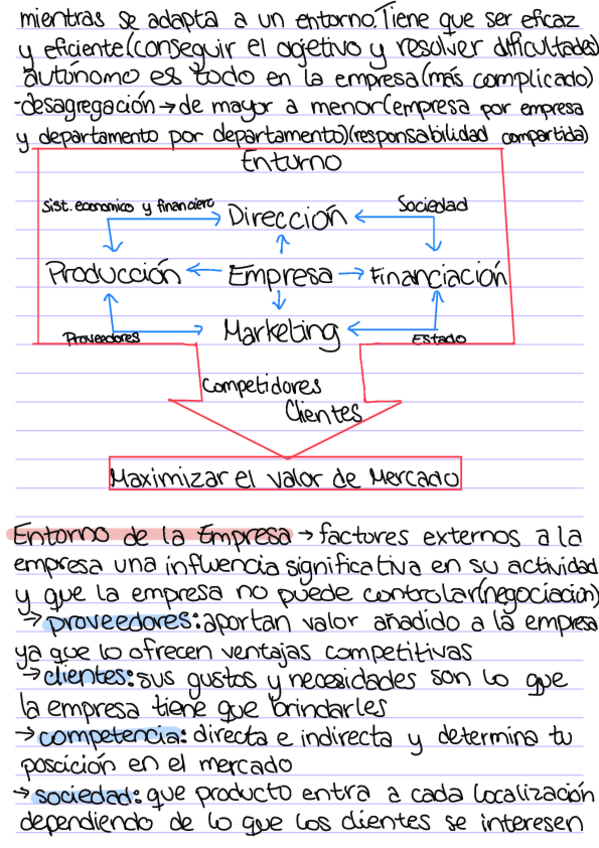 mientras se adapta a un entorno. Tiene que ser eficaz
y eficiente (conseguir el objetivo y resolver dificultades)
autónomo es todo en la empresa (más complicado)
-desagregación → de mayor a menor (empresa por empresa
y departamento por departamento) (responsabilidad compartida)
Entorno
Sist. economico y financiero
Sociedad
Dirección
Producción ← Empresa → Financiación
Marketing
Proveedores
Estado
Competidores
Clientes
Maximizar el valor de Mercado
Entorno de la Empresa → factores externos a la
empresa una influencia significativa en su actividad
y que la empresa no puede controlar (negociación)
→ proveedores: aportan valor añadido a la empresa
ya que lo ofrecen ventajas competitivas
→ clientes: sus gustos y necesidades son lo que
la empresa tiene que brindarles
→ competencia: directa e indirecta y determina tu
poscición en el mercado
→ sociedad: que producto entra a cada localización
dependiendo de lo que los clientes se interesen